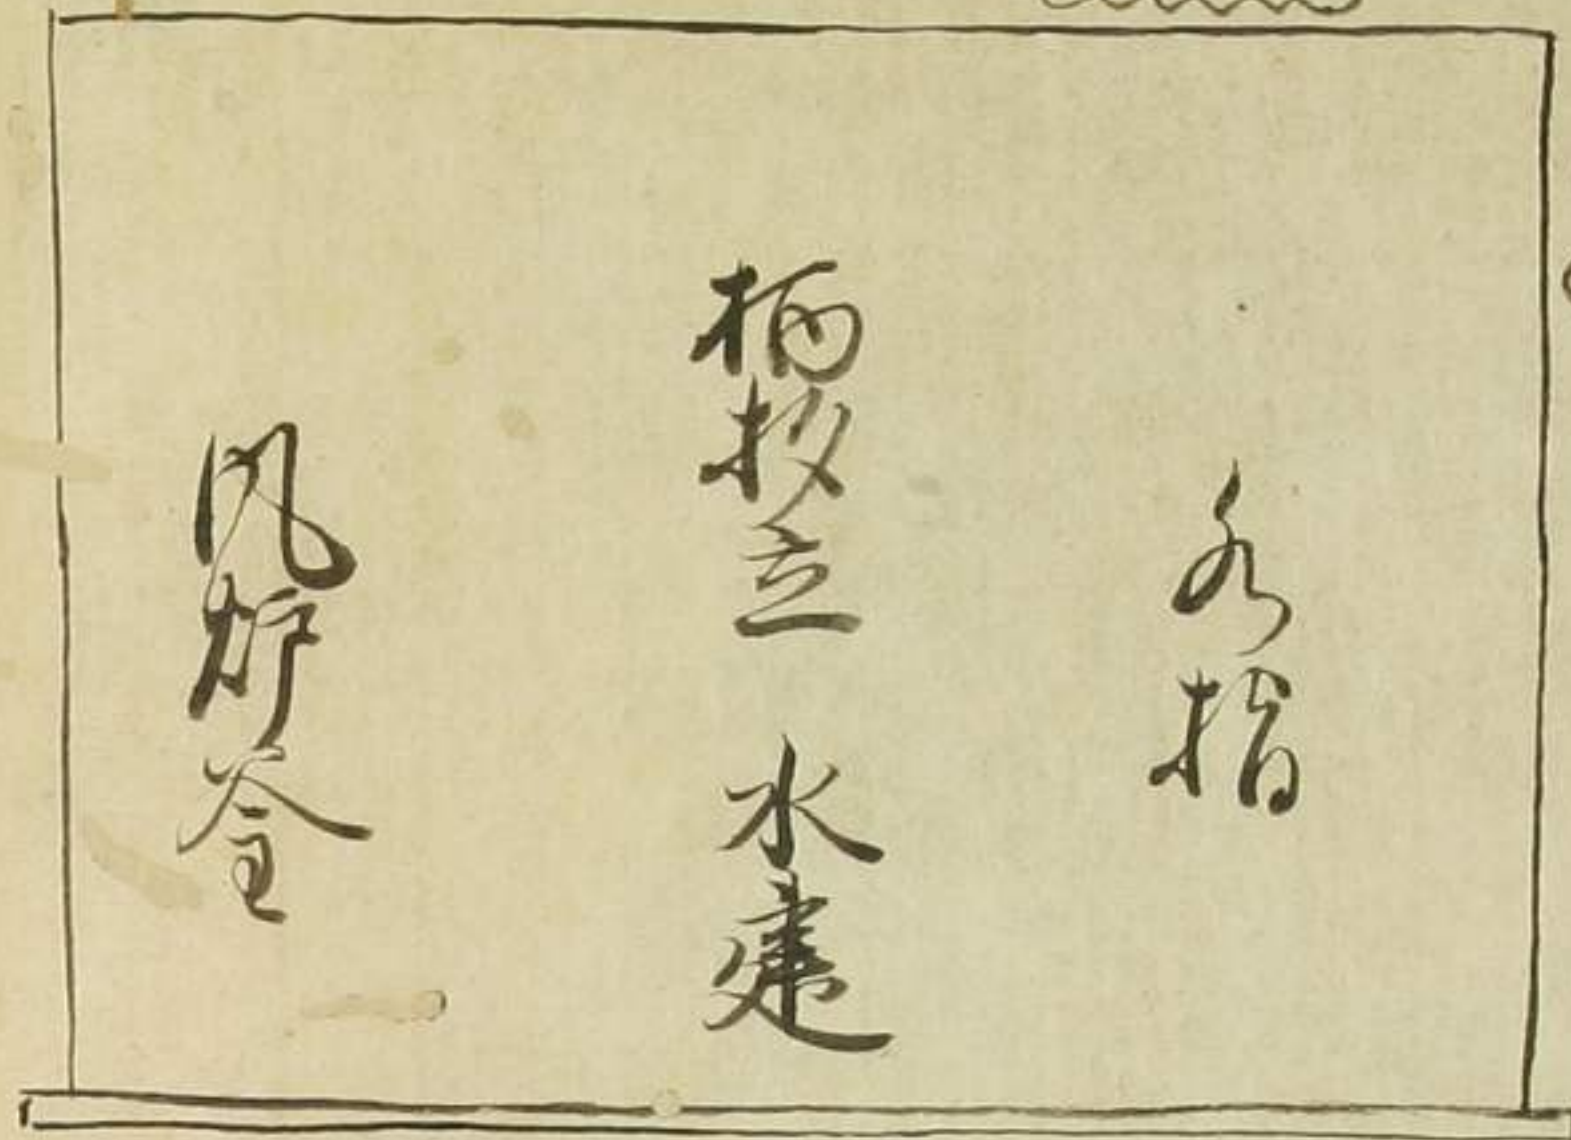 水指
柄杓立 水建
風炉釜